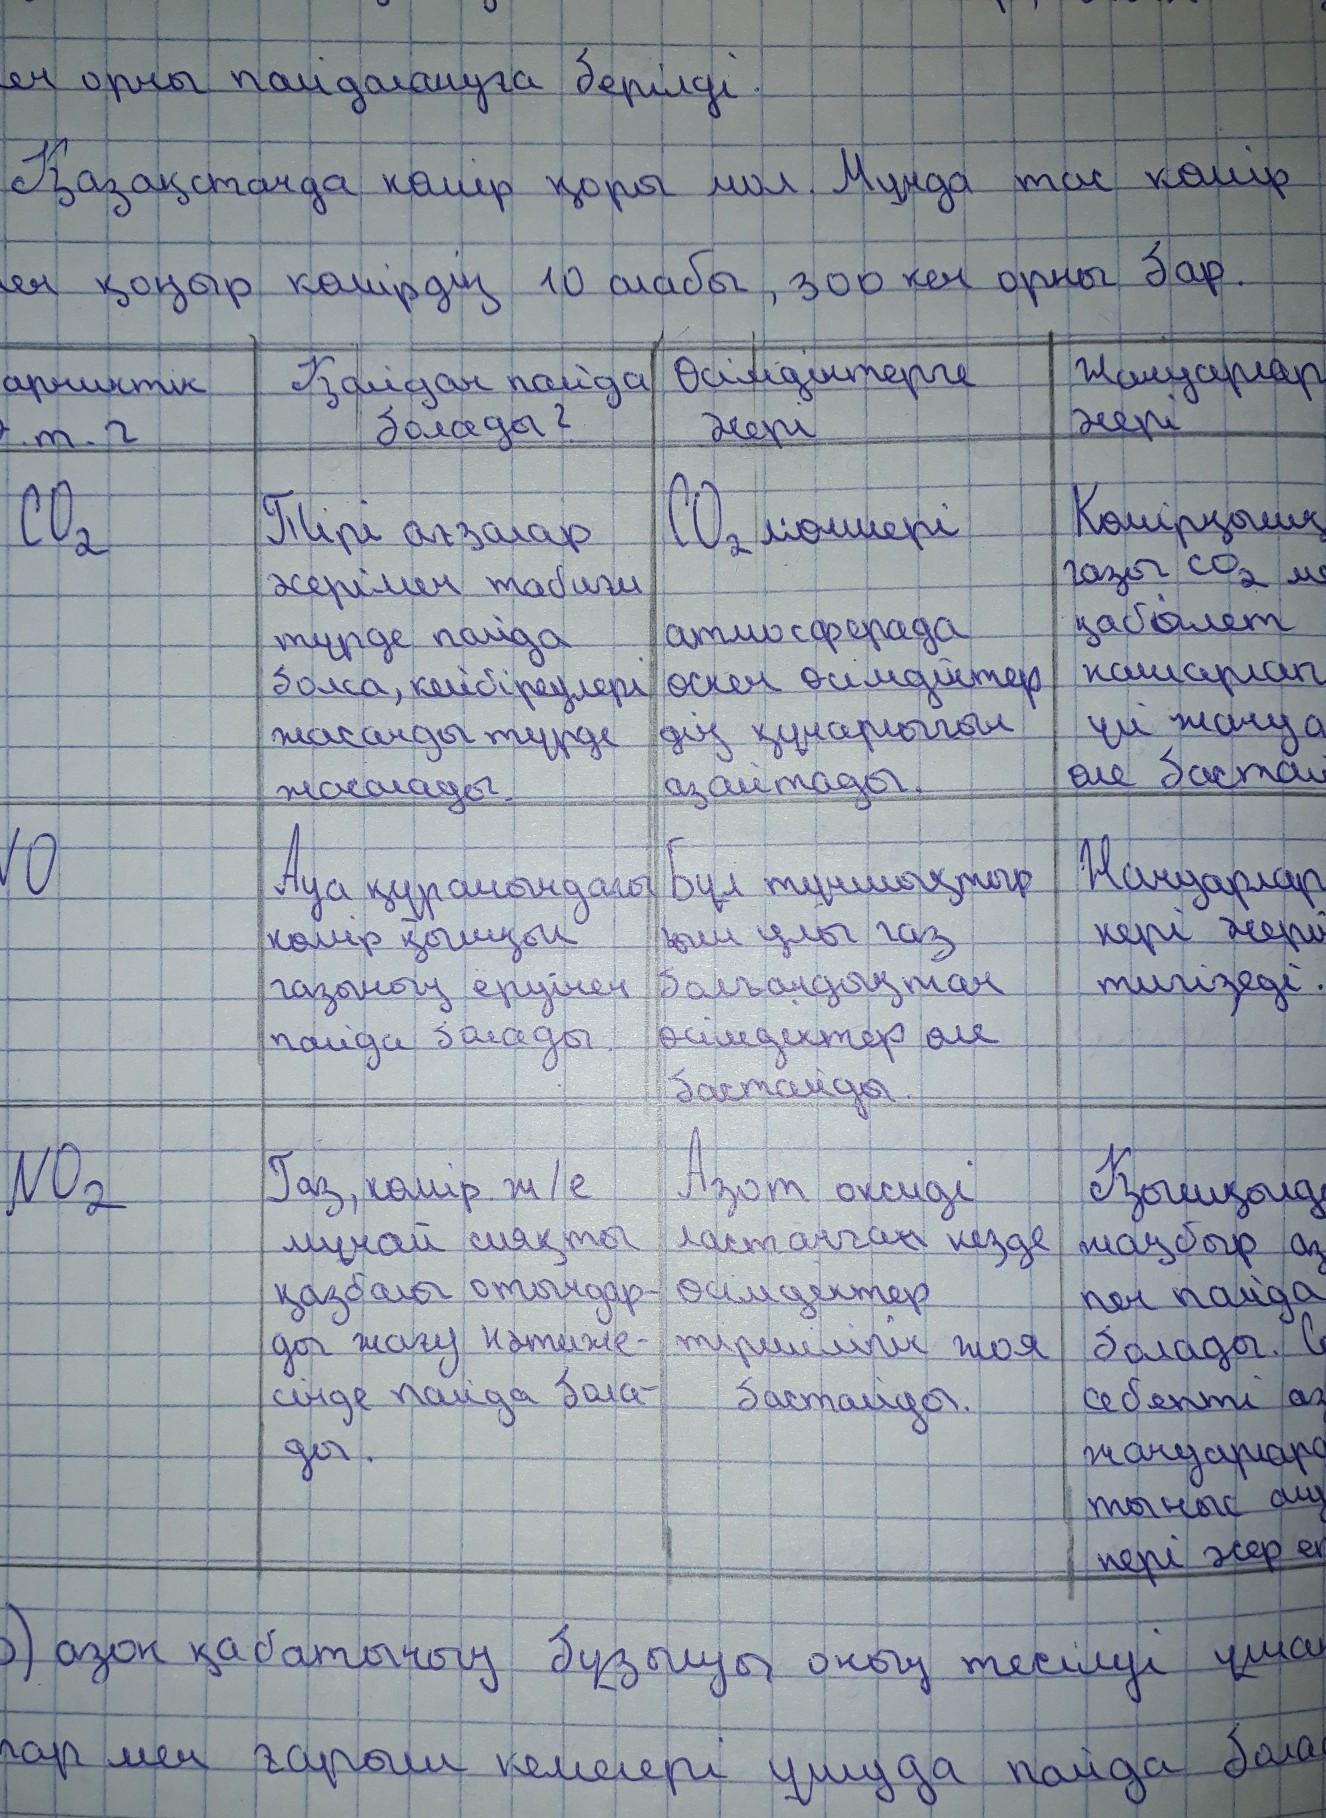 ен орны пайдалануға берілді.
Қазақстанда көмір қоры мол. Мұнда тас көмір
мен қоңыр көмірдің 10 алабы, 300 кен орны бар.
парниктік
т.г
Қайдан пайда
болады?
Өсімдіктерге
әсері
Жануарлар
әсері
CO2
Тірі ағзалар
әсерімен табиғи
түрде пайда
болса, кейбіреулері
жасанды түрде
жасалады.
CO2 мөлшері
атмосферада
өскен өсімдіктер
дің құнарлығын
азайтады.
Көмірқышқ
газы CO2 мө
қабілет
нашарлап
үй жануа
өле бастай
NO
Ауа құрамындағы
көмір қышқыл
газының еруінен
пайда болады.
Бұл тұншықтыр
ғыш улы газ
болғандықтан
өсімдіктер өле
бастайды.
Жануарлар
кері әсері
тигізеді.
NO2
Газ, көмір ж/е
мұнай сияқты
қазбалы отындар-
ды жағу нәтиже-
сінде пайда бола-
ды.
Азот оксиді
ластанған кезде
өсімдіктер
тіршілігін жоя
бастайды.
Қышқылд
жаңбыр аз
пен пайда
болады. С
себепті аз
жануарлар
тыныс алу
кері әсер ет
б) азон қабатының бұзылуы оның тесілуі ұша
тар мен ғарыш кемелері ұшуда пайда бола